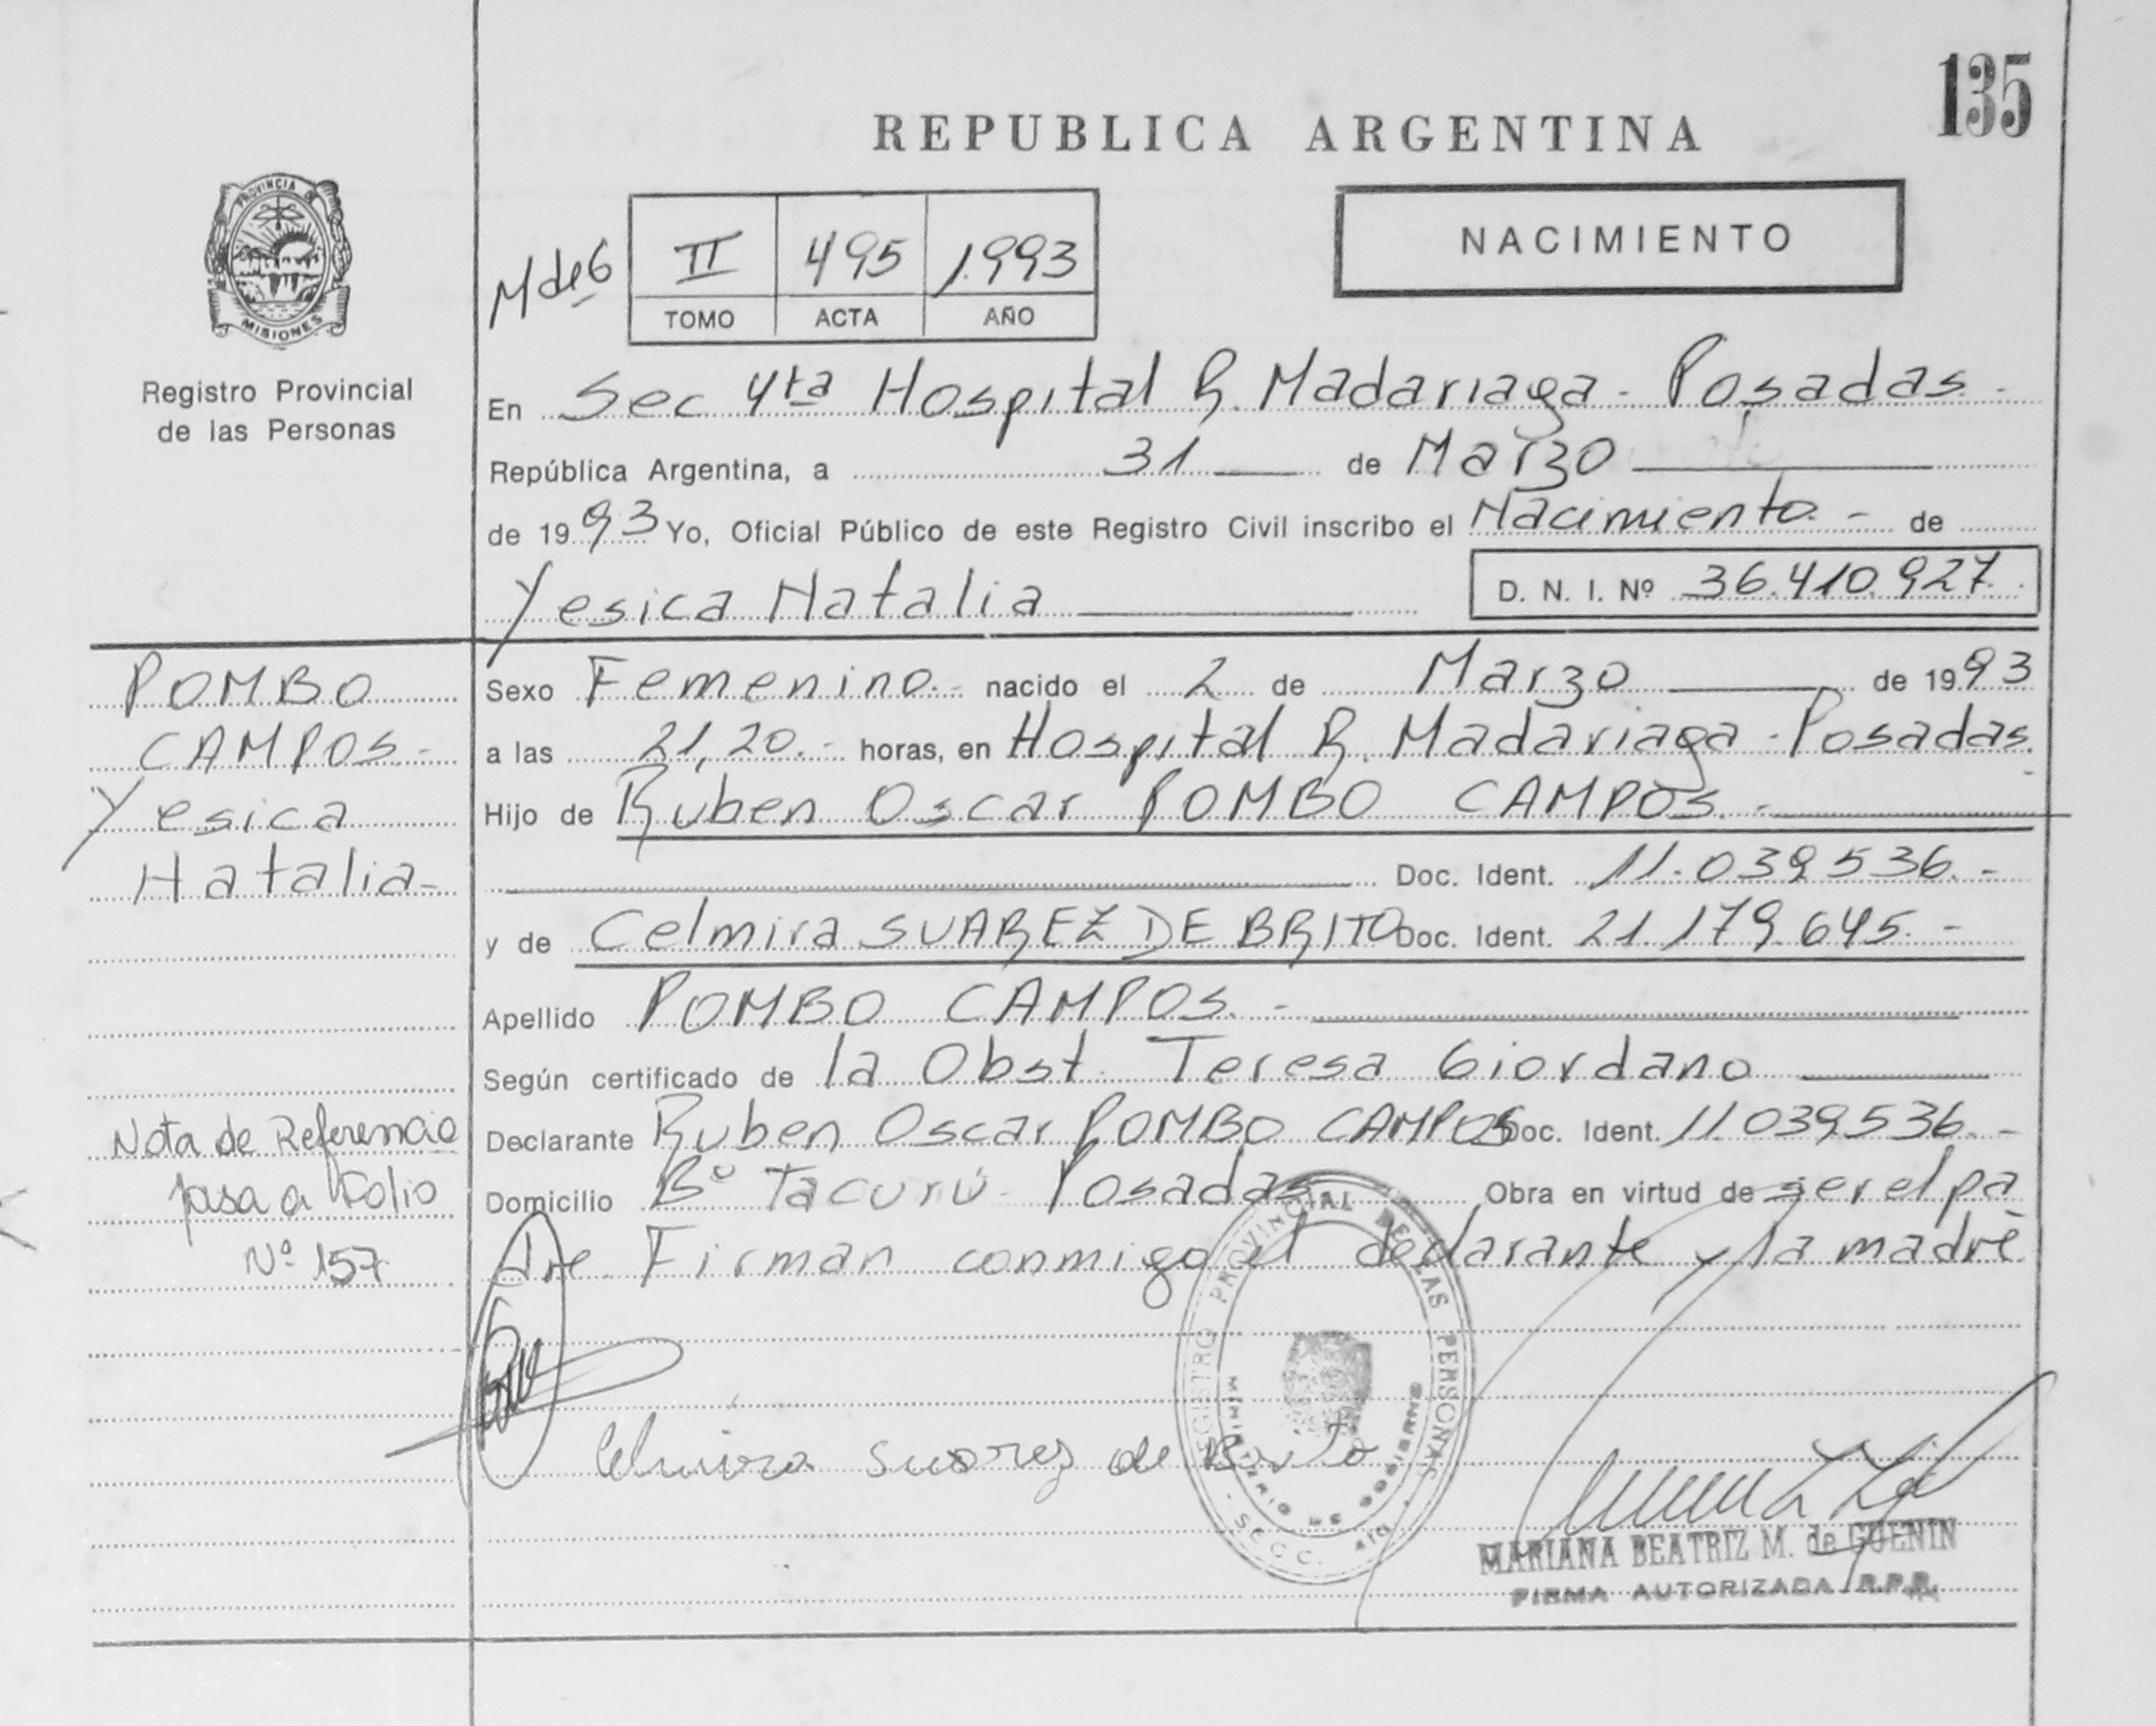 135
REPUBLICA ARGENTINA
PROVINCIA DE
MISIONES
Registro Provincial
de las Personas
M de G
II 495 1.993
TOMO ACTA AÑO
NACIMIENTO
En Sec 4ta Hospital R. Madariaga - Posadas -
República Argentina, a 31 de Marzo
de 1993 Yo, Oficial Público de este Registro Civil inscribo el Nacimiento. - de
Yesica Natalia
D. N. I. Nº 36.410.927.
POMBO
CAMPOS.-
Yesica
Natalia-
Sexo Femenino.- nacido el 2 de Marzo de 1993
a las 21,20.- horas, en Hospital R. Madariaga - Posadas. -
Hijo de Ruben Oscar POMBO CAMPOS. -
Doc. Ident. 11.039536. -
y de Celmira SUAREZ DE BRITO Doc. Ident. 21.179.645. -
Apellido POMBO CAMPOS. -
Según certificado de la Obst. Teresa Giordano
Nota de Referencia
pasa a Folio
Nº 157
Declarante Ruben Oscar POMBO CAMPOS Doc. Ident. 11.039536. -
Domicilio Bº Tacurú - Posadas Obra en virtud de ser el pa
dre Firman conmigo el declarante y la madre
Celmira Suarez de Brito
REGISTRO PROVINCIAL DE LAS PERSONAS
MINISTERIO DE GOBIERNO
SECC. 4ta
MARIANA BEATRIZ M. de GUENIN
FIRMA AUTORIZADA R.P.P.